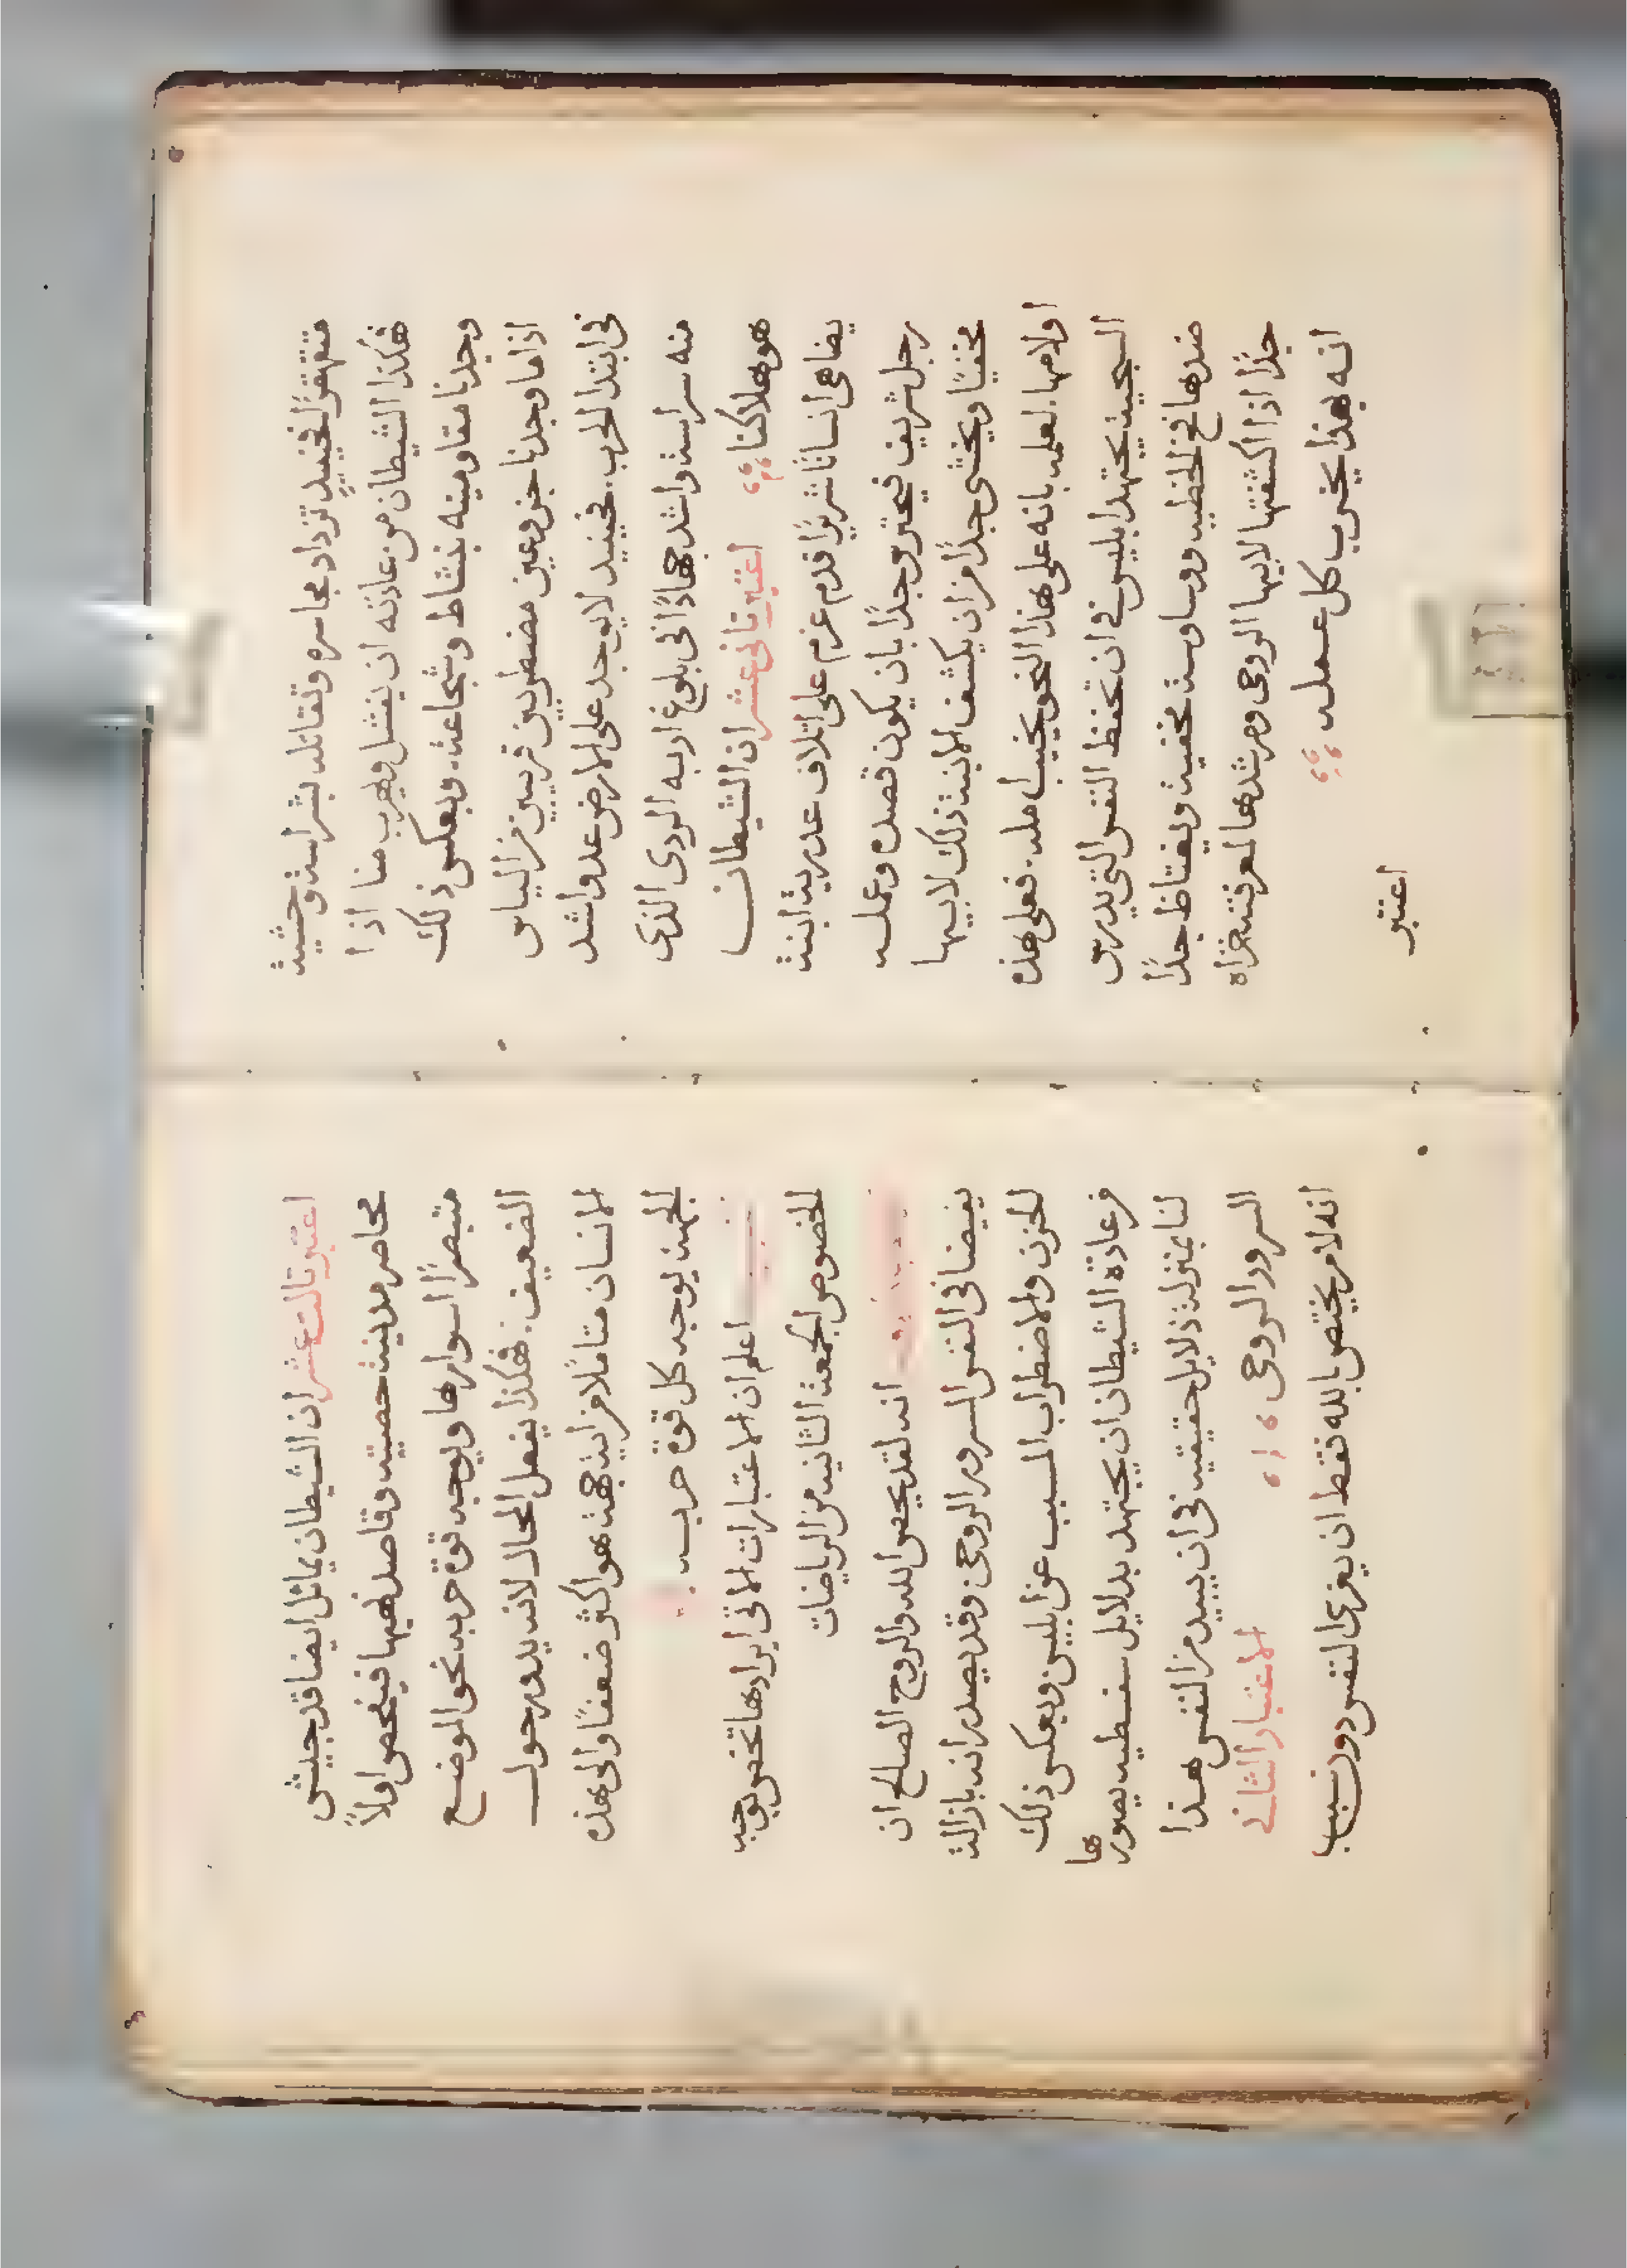 متقهقرًا فحينيدٍ تزداد مجاسره وتقاتله بشراسة وحشية
فهكذا الشيطان من عادته ان يفشل ويهرب منا اذا
وجدنا مقاومينه بنشاط وشجاعة. وبعكس ذلك
اذا ما وجدنا جزوعين مضطربين قريبين من الياس
في ابتدا الحرب. فحينيد لا يوجد على الارض عدو اشد
منه شراسة واشد جهادًا في بلوغ اربه الردى الذى
هو هلاكنا اعتبر ثانى عشر ان الشيطان
يضاهى انسانًا شريرًا قدم عزم على اتلاف عذرية ابنة
رجل شريف فيحترص جدًا بان يكون قصده وعمله
مخفيًا ويخشى جدًا من ان يكشف الابنة ذلك لابيها
او لامها. لعلمه بانه على هذا النحو يخيب امله. فعلى هذه
السجية يجتهد ابليس في ان تحفظ النفس التي يدرس
ضدها فخ الخطيه ووساوسة مخفية ويغتاظ جدًا
جدًا اذا اكشفتها لابيها الروحى ومرشدها لمعرفته
انه بهذا يخرب كل عمله
اعتبر
اعتبر ثالث عشر ان الشيطان يماثل ايضا قد جيش
محاصر مدينة حصينه وقاصد نهبها فيفحص اولاً
متبصرًا اسوارها ويوجه قوة حربه نحو الموضع
الضعيف. فهكذا يفعل المحال لانه يدور حول
الانسان متاملا من اية جهة هو اكثر ضعفًا والى هذه
الجهة يوجه كل قوة حربه
اعلم ان الاعتبارات الاتى ايرادها تخص بوجه
الخصوص الجمعة الثانيه من الرياضات
انه لقد يخص الله والروح الصالح ان
يفيضا فى النفس السرور الروحى وقد يصدرانه بازالة
الحزن والاضطراب المسبب عن ابليس وبعكس ذلك
فمن عادة الشيطان ان يجتهد بدلايل سفسطيه يصورها
لنا بمنزلة دلايل حقيقيه في ان يبيد من النفس هذا
السرور الروحى الاعتبار الثانى
انه لامر يختص بالله فقط ان يعزى النفس دون سبب